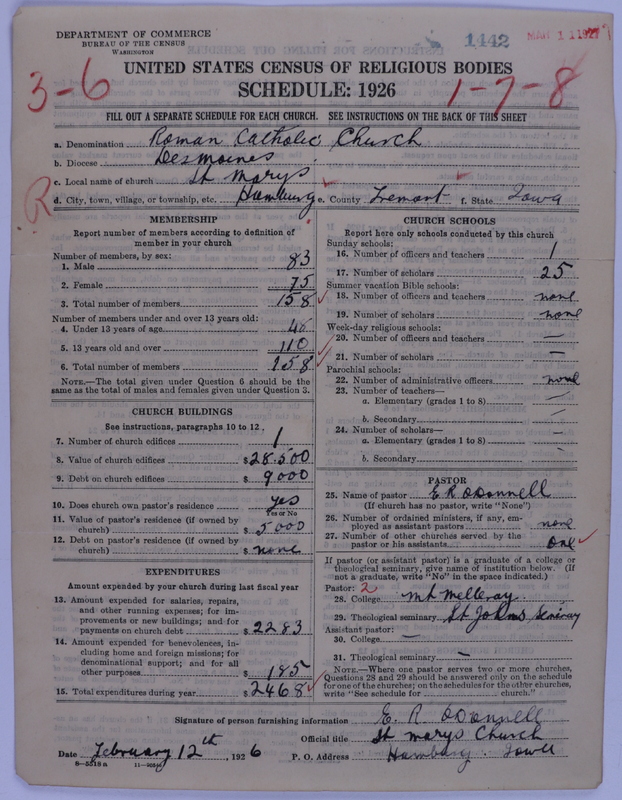 DEPARTMENT OF COMMERCE
BUREAU OF THE CENSUS
WASHINGTON
1442
MAR 11 1927
UNITED STATES CENSUS OF RELIGIOUS BODIES
SCHEDULE: 1926
3-6
1-7-8
FILL OUT A SEPARATE SCHEDULE FOR EACH CHURCH. SEE INSTRUCTIONS ON THE BACK OF THIS SHEET
a. Denomination Roman Catholic Church
b. Diocese Desmoines
c. Local name of church St Marys
R
d. City, town, village, or township, etc. Hamburg e. County Fremont f. State Iowa
MEMBERSHIP
Report number of members according to definition of
member in your church
Number of members, by sex:
1. Male 83
2. Female 75
3. Total number of members 158
Number of members under and over 13 years old:
4. Under 13 years of age 48
5. 13 years old and over 110
6. Total number of members 158
NOTE.—The total given under Question 6 should be
same as the total of males and females given under Question 3.
CHURCH BUILDINGS
See instructions, paragraphs 10 to 12
7. Number of church edifices 1
8. Value of church edifices $28.500
9. Debt on church edifices $9000
10. Does church own pastor's residence yes
Yes or No
11. Value of pastor's residence (if owned by
church) $5000
12. Debt on pastor's residence (if owned by
church) $none
EXPENDITURES
Amount expended by your church during last fiscal year
13. Amount expended for salaries, repairs,
and other running expenses; for im-
provements or new buildings; and for
payments on church debt $2283
14. Amount expended for benevolences, in-
cluding home and foreign missions; for
denominational support; and for all
other purposes $185
15. Total expenditures during year $2468
CHURCH SCHOOLS
Report here only schools conducted by this church
Sunday schools:
16. Number of officers and teachers 1
17. Number of scholars 25
Summer vacation Bible schools:
18. Number of officers and teachers none
19. Number of scholars none
Week-day religious schools:
20. Number of officers and teachers —
21. Number of scholars —
Parochial schools:
22. Number of administrative officers none
23. Number of teachers—
a. Elementary (grades 1 to 8) —
b. Secondary —
24. Number of scholars—
a. Elementary (grades 1 to 8) —
b. Secondary —
PASTOR
25. Name of pastor E R ODonnell
(If church has no pastor, write "None")
26. Number of ordained ministers, if any, em-
ployed as assistant pastors none
27. Number of other churches served by the
pastor or his assistants one
If pastor (or assistant pastor) is a graduate of a college or
theological seminary, give name of institution below. (If
not a graduate, write "No" in the space indicated.)
Pastor: 2
28. College Mt Melleray
29. Theological seminary St Johns Seminary
Assistant pastor:
30. College —
31. Theological seminary —
NOTE.—Where one pastor serves two or more churches,
Questions 28 and 29 should be answered only on the schedule
for one of the churches; on the schedules for the other churches,
write "See schedule for church."
Signature of person furnishing information E. R ODonnell
Official title St marys Church
Date February 12th, 1926 P. O. Address Hamburg Iowa
8—5518 a